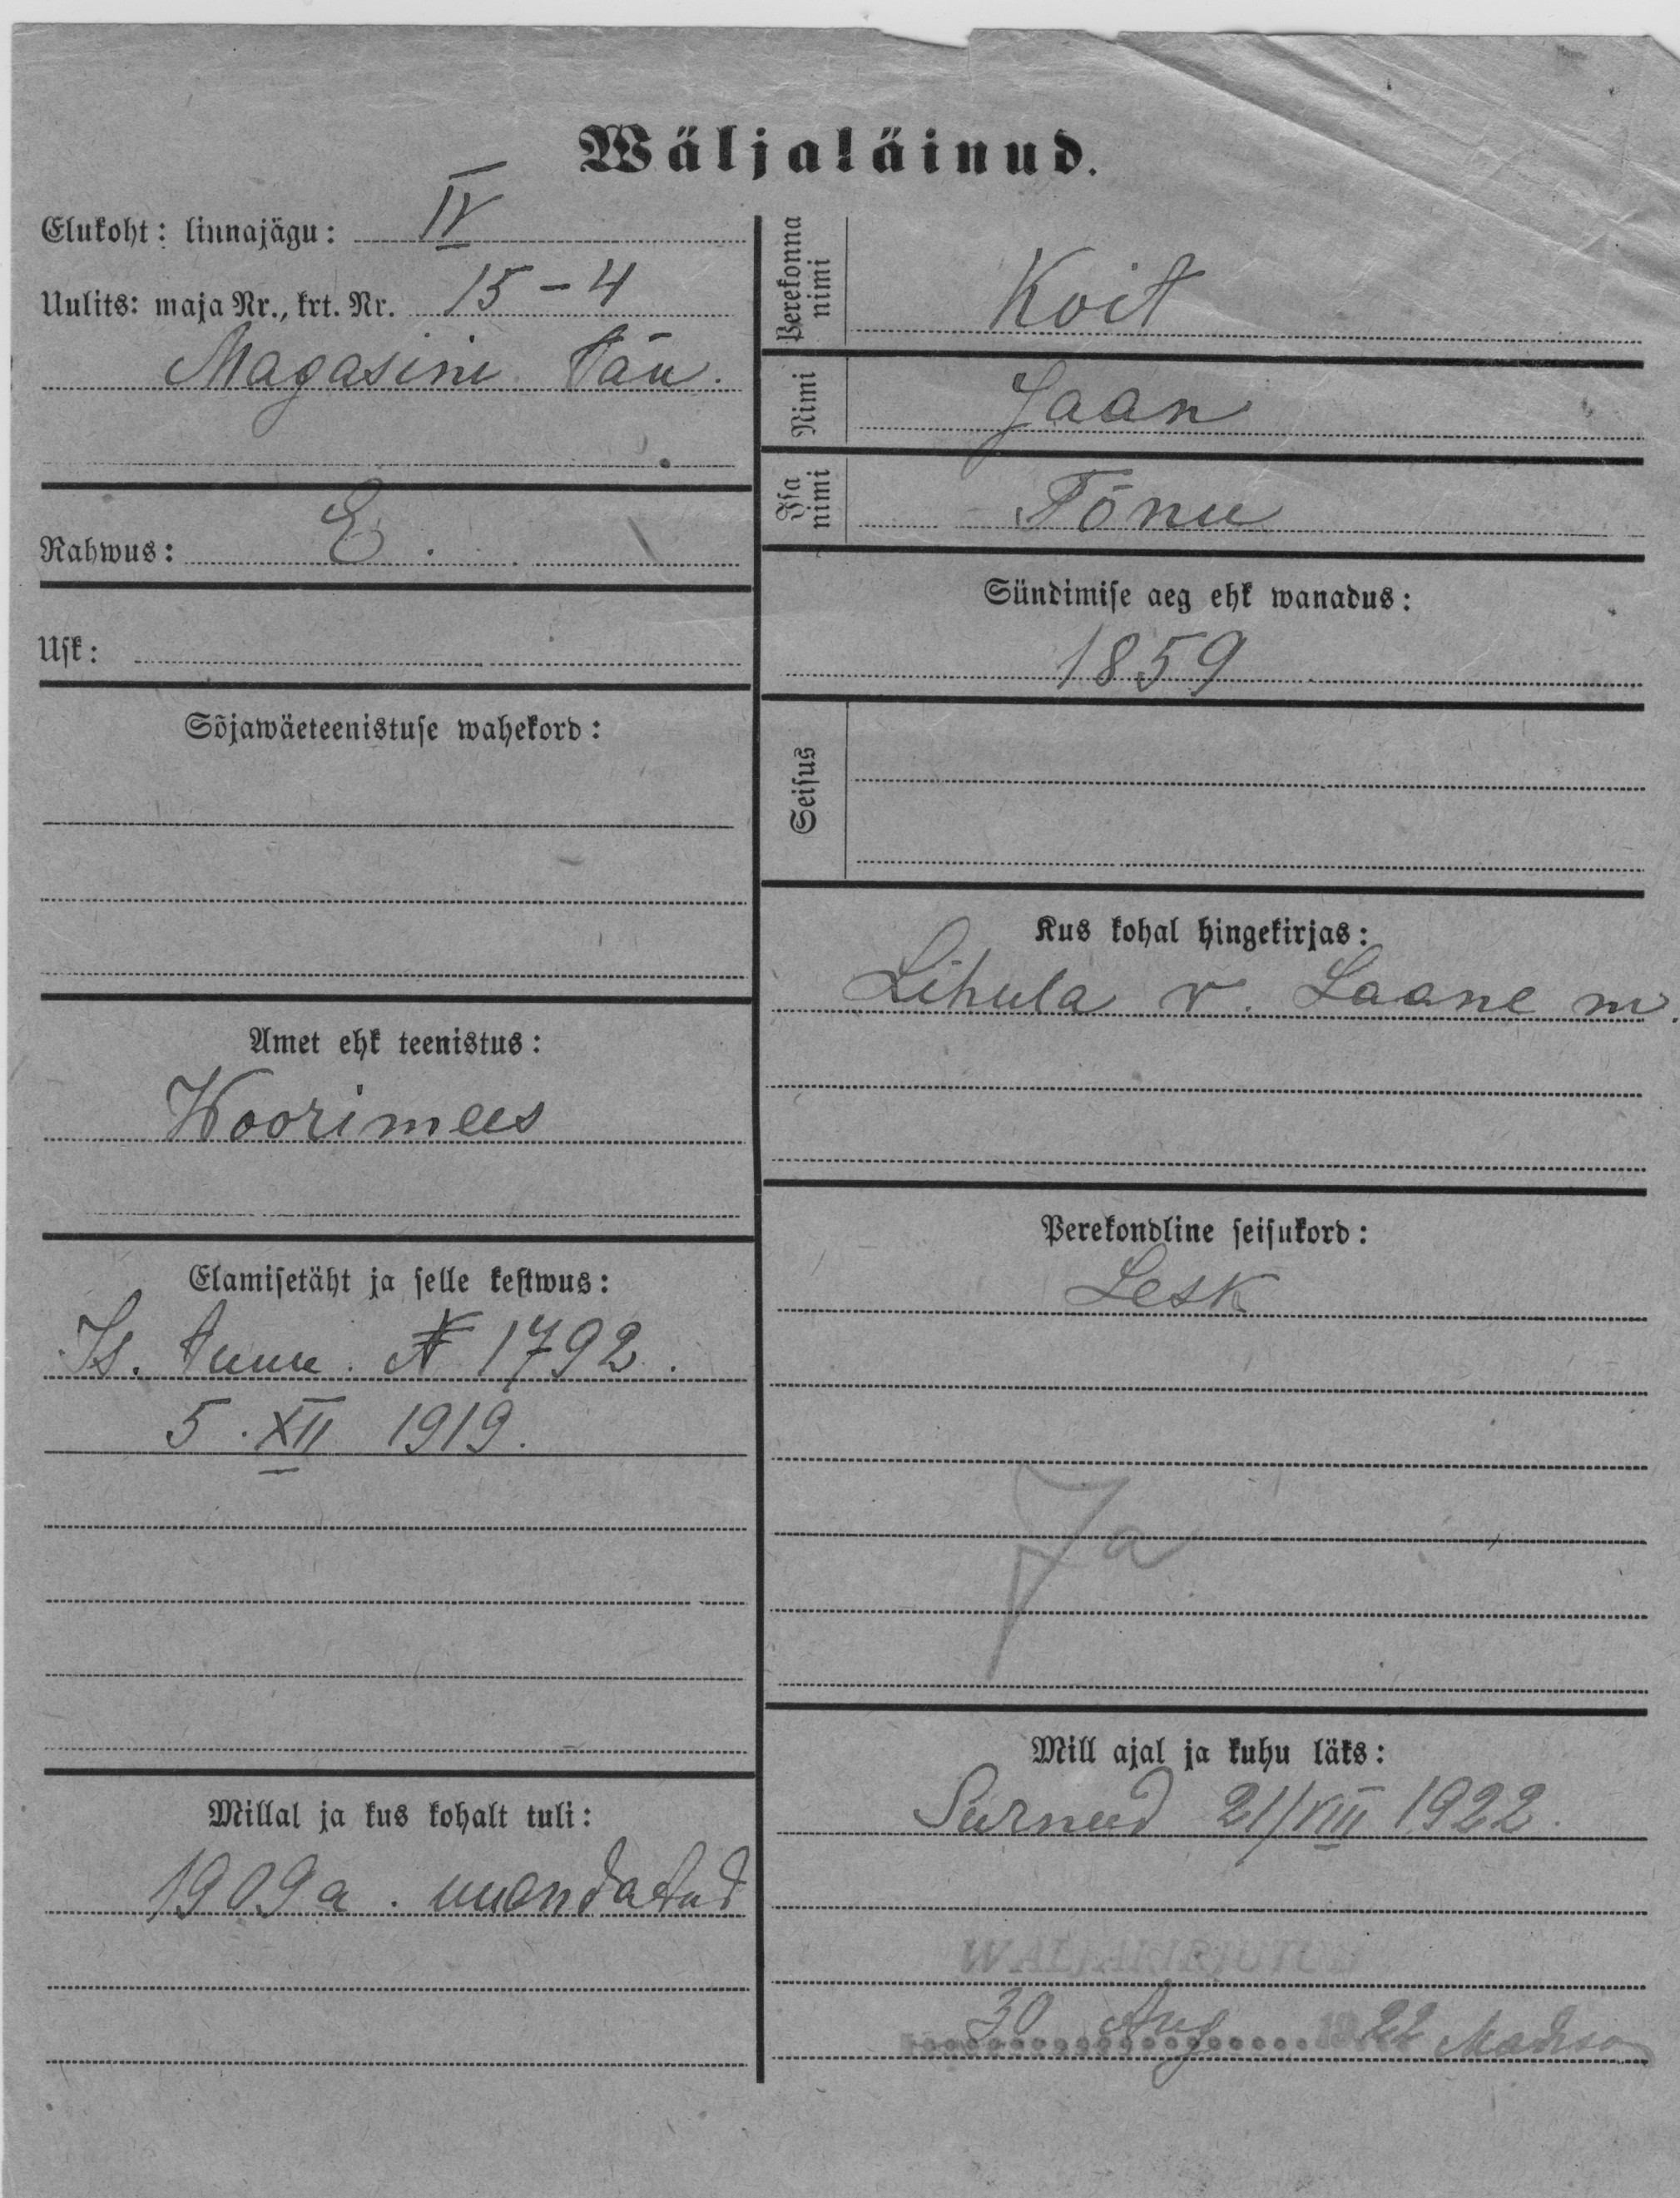 Wäljaläinud.
Elukoht: linnajägu: IV
Uulits: maja Nr., krt. Nr. 15-4
Magasini Tän.
Rahwus: E.
Usk:
Sõjawäeteenistuse wahekord:
Amet ehk teenistus:
Woorimees
Elamisetäht ja selle kestwus:
Is. tunn. № 1792.
5. XII 1919.
Millal ja kus kohalt tuli:
1909 a.
Perekonna nimi Koit
Nimi Jaan
Isa nimi Tõnu
Sündimise aeg ehk wanadus:
1859
Seisus
Kus kohal hingekirjas:
Lihula v. Laane m.
Perekondline seisukord:
Lesk
Ja
Mill ajal ja kuhu läks:
Surnud 21/VIII 1922.
WÄLJAKIRJUTUD
30 Aug 1922